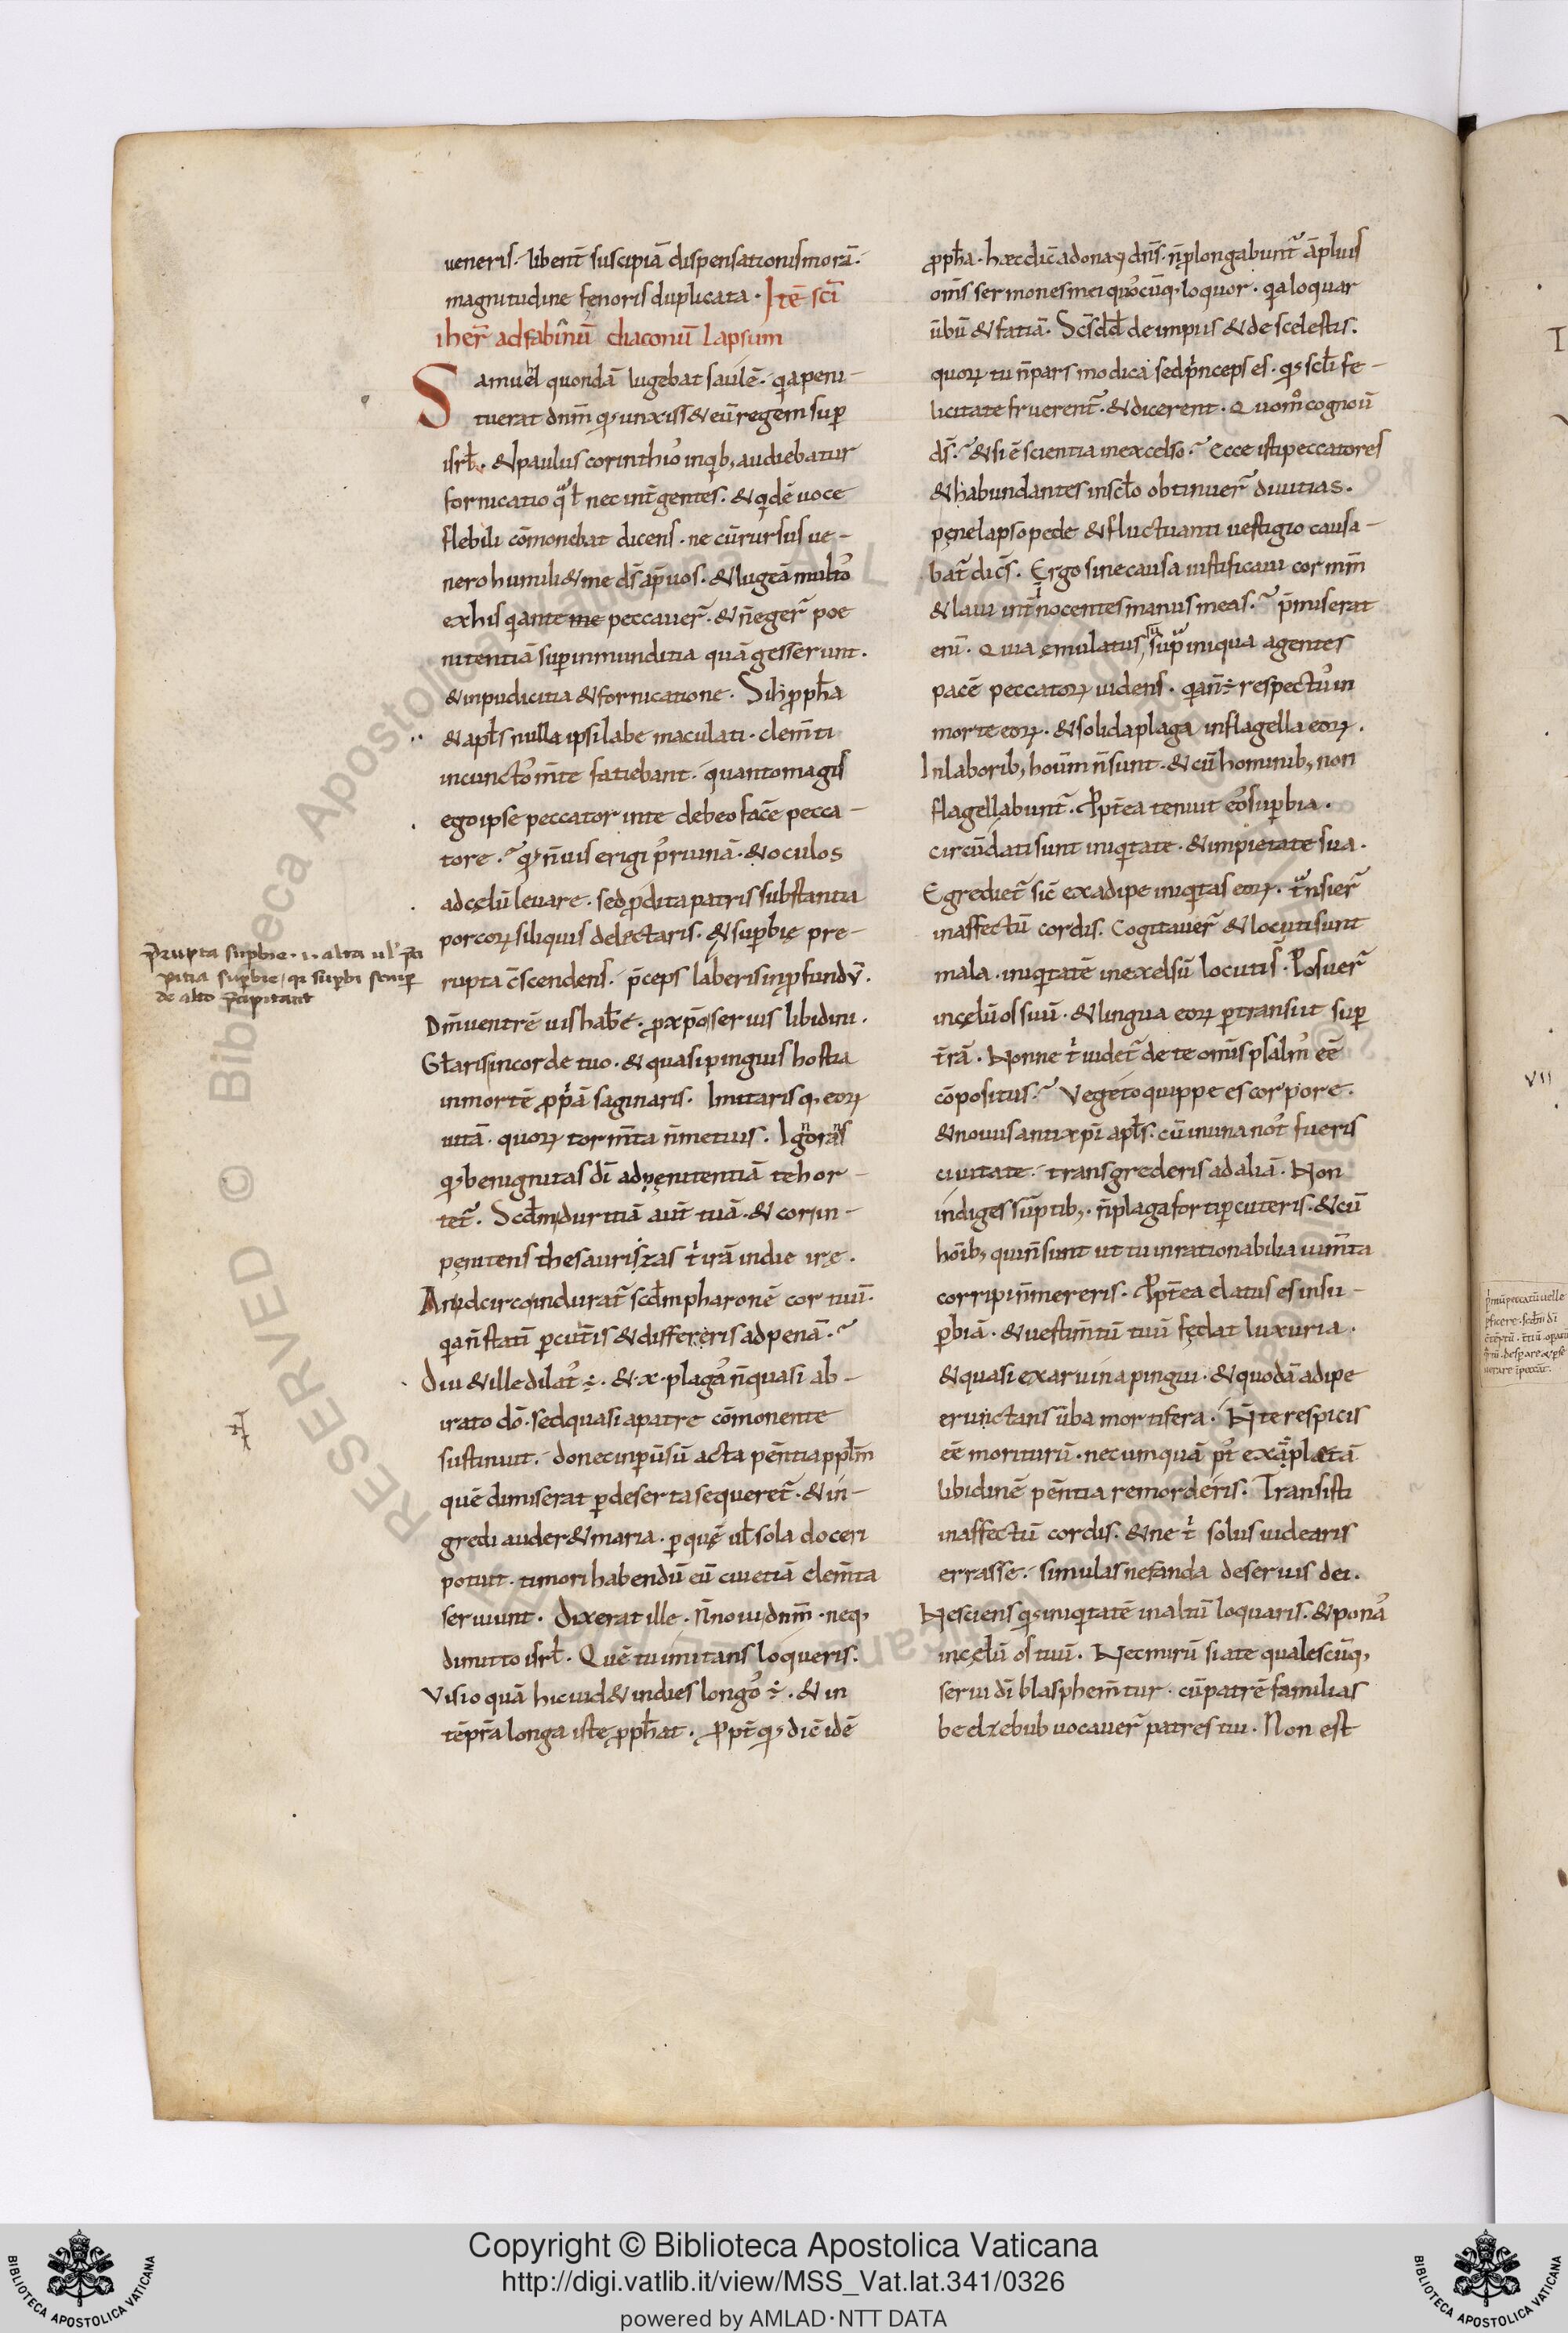 ueneris. libenť suscipiā dispensationis morā.
magnitudine fęnoris duplicata. Itē sc̄i
iher̄ ad sabinū diaconū lapsum
Samuel quondā lugebat saulē. qa peni-
tuerat dn̄m qđ unxiss& eū regem sup
isrł. & paulus corinthio᷒ in qb; audiebatur
fornicatio qͣł nec inť gentes. & qdē uoce
flebili cōmonebat dicens. ne cū rursus ue-
nero humili& me ds̄ ap̄ uos. & lugeā multo᷒
ex his q ante me peccauer̄. & n̄ eger̄ poe
nitentiā sup inmunditia quā gesserunt.
& inpudicitia & fornicatione. Si h̄ ꝓph̄a
& apłs nulla ipsi labe maculati. clem̄ti
in cuncto᷒ m̄te fatiebant. quanto magis
ego ipse peccator in te debeo facē pecca-
tore. qđ n̄ uis erigi p᷒ ruinā. & oculos
ad cęlū leuare. sed ꝓdita patris substantia
porcoꝝ siliquis delectaris. & supbię pre-
rupta c̄scendens. p̄ceps laberis in ꝓfundū.
Dm̄ uentrē uis hab̄e. ꝓ xp̄o seruis libidini.
Głaris in corde tuo. & quasi pinguis hostia
in mortē ꝓpͥā saginaris. Imitarisq; eoꝝ
uitā. quoꝝ torm̄ta n̄ metuis. Ignoras
qđ benignitas dī ad pęnitentiā te hor-
tet̄. Scd̄m duritiā aut̄ tuā. & cor in-
pęnitens thesaurizas tͥ irā in die irę.
An idcirco indurat̄ scd̄m pharonē cor tuū.
qa n̄ statī pcut̄is & differeris ad penā.
Diu & ille dilat᷒ ÷. & x. plaga᷒ n̄ quasi ab-
irato dō. sed quasi a patre cōmonente
sustinuit. donec in pūsū acta pēntia ppłm
quē dimiserat p deserta sequeret̄. & in-
gredi auder& maria. p quę uł sola doceri
potuit. timori habendū eū cui etiā elem̄ta
seruiunt. Dixerat ille. n̄ noui dn̄m. neq;
dimitto isrł. Quē tu imitans loqueris.
Visio quā hic uid& in dies longo᷒ ÷. & in
tēpra longa iste ꝓph̄at. ꝓpť qđ dic̄ idē
ꝓph̄a. hęc dic̄ adonay dn̄s. n̄ ꝓlongabunt̄ āplius
om̄s sermones mei quo᷒cūq; loquor. qa loquar
ūbū & fatiā. Sc̄s dd̄ de impiis & de scelestis.
quoꝝ tu n̄ pars modica sed pͥnceps es. qđ scłi fe-
licitate fruerent̄. & dicerent. Quom̊ cognoū
ds̄. & si ē scientia in excelso. Ecce isti peccatores
& habundantes in scło obtinuer̄ diuitias.
pęne lapso pede & fluctuanti uestigio causa-
bat̄ dic̄s. Ergo sine causa iustificaui cor m̄m
& laui int̄ innocentes manus meas. p̄miserat
eni. Quia ęmulatus sū supͣ iniqua agentes
pacē peccatoꝝ uidens. qa n̄ ÷ respect᷒ in
morte eoꝝ. & solida plaga in flagella eoꝝ.
In laborib; houm n̄ sunt. & cū hominib; non
flagellabunt̄. Ꝓpťea tenuit eo᷒ supbia.
circūdati sunt iniqtate. & impietate sua.
Egrediet̄ sic̄ ex adipe iniqtas eoꝝ. tͣnsier̄
in affectū cordis. Cogitauer̄ & locuti sunt
mala. iniqtatē in exelsū locuti s̄. Posuer̄
in cęlū os suū. & lingua eoꝝ ptransiit sup
t̄rā. Nonne tͥ uidet̄ de te om̄is psalm᷒ eē
cōpositus. Vegeto quippe es corpore.
& nouus antixp̄i apłs. cū in una not᷒ fueris
ciuitate. transgrederis ad aliā. Non
indiges sūptib;. n̄ plaga forti pcuteris. & cū
hoīb; qui n̄ sunt ut tu inrationabilia ium̄ta
corripi n̄ mereris. Ꝓpťea elatus es in su-
pbiā. & uestim̄tū tuū fędat luxuria.
& quasi ex aruina pingui. & quodā adipe
eructans ūba mortifera. N̄ te respicis
eē moriturū. nec umquā p᷒t exꝓletā
libidinē pēntia remorderis. Transisti
in affectū cordis. & ne tͥ solus uidearis
errasse. simulas nefanda de seruis dei.
Nesciens qđ iniqtatē in altū loquaris. & pona᷒
in cęlū os tuū. Nec mirū si a te qualescūq;
serui dī blasphem̄tur. cū patrē familias
beelzebub uocauer̄ patres tui. Non est
p̄rupta supbie. i. alta uł p̄ci
pitia supbie, qi supbi semp
de alto p̄cipitant
VII
Copyright © Biblioteca Apostolica Vaticana
http://digi.vatlib.it/view/MSS_Vat.lat.341/0326
powered by AMLAD·NTT DATA
BIBLIOTECA APOSTOLICA VATICANA
BIBLIOTECA APOSTOLICA VATICANA